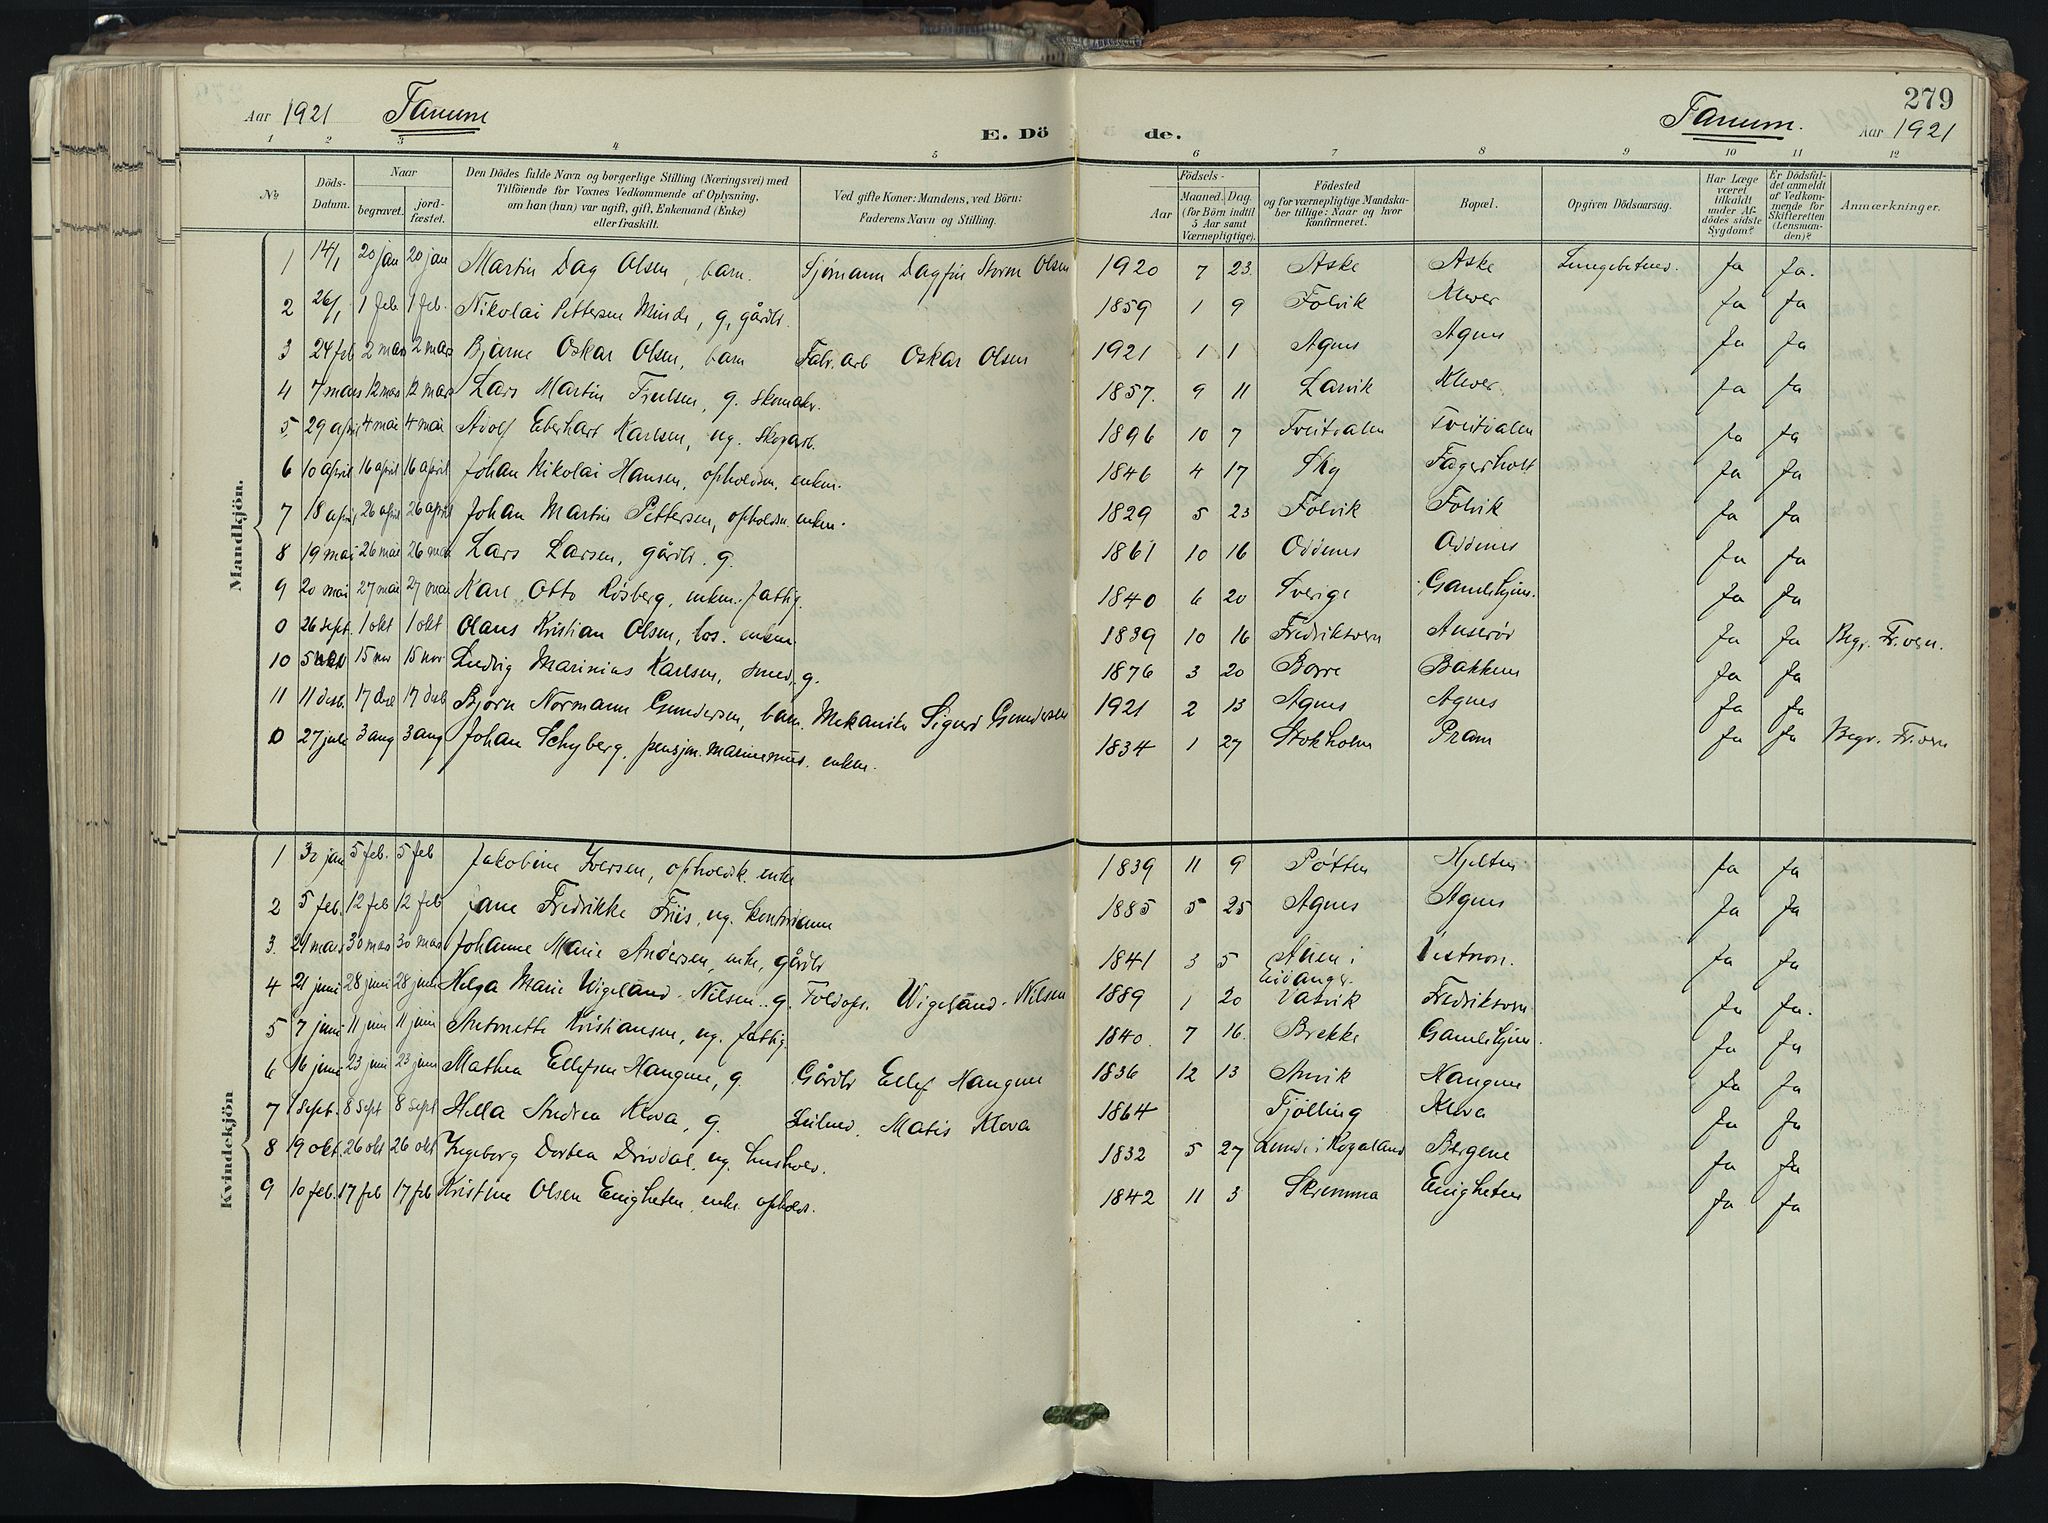 279
Aar 1921 Tanum
E. Dö de.
Tanum. Aar 1921
1 2 3 4 5 6 7 8 9 10 11 12
No Döds-Datum. Naar begravet. jord-fæstet. Den Dödes fulde Navn og borgerlige Stilling (Næringsvei) med Tilföiende for Voxnes Vedkommende af Oplysning, om han (hun) var ugift, gift, Enkemand (Enke) eller fraskilt. Ved gifte Koner: Mandens, ved Börn: Faderens Navn og Stilling. Födsels- Aar Maaned. Dag. (for Börn indtil 5 Aar samt Værnepligtige). Födested og for værnepligtige Mandskaber tillige: Naar og hvor konfirmeret. Bopæl. Opgiven Dödsaarsag. Har Læge været tilkaldt under Afdödes sidste Sygdom? Er Dödsfaldet anmeldt af Vedkommende for Skifteretten (Lensmanden)? Anmærkninger.
Mandkjön.
1 14/1 20 jan 20 jan Martin Dag Olsen, barn. Sjömann Dagfin Storm Olsen 1920 7 23 Aske Aske Lungebetned. Ja Ja.
2 26/1 1 feb. 1 feb. Nikolai Pettersen Minde, g, gårdbr. 1859 1 9 Folvik Klever Ja Ja
3 24 feb 2 mars 2 mars Bjarne Oskar Olsen, barn Fabr.arb Oskar Olsen 1921 1 1 Agnes Agnes Ja Ja
4 7 mars 12 mars 12 mars Lars Martin g. skomaker. 1857. 9 11 Larvik Klever Ja Ja
5 29 april 4 mai 4 mai Adolf Eberhart Karlsen, ug. Skogarb. 1896 10 7 Tveitdalen Tveitdalen Ja Ja
6 10 april 16 april 16 april Johan Nikolai Hansen, opholdsm. enkem. 1846 4 17 Sky Fagerholt Ja Ja
7 18 april 26 april 26 april Johan Martin Pettersen, opholdsm enkem. 1829 5 23 Folvik Folvik Ja Ja
8 19 mai 26 mai 26 mai Lars Larsen, gårdbr. g. 1861 10 16 Oddenes Oddenes Ja Ja
9 20 mai 27 mai 27 mai Karl Otto Rösberg, enkem. fattig. 1840 6 20 Sverige Gamlehjem. Ja Ja
0 26 sept. 1 okt 1 okt Olaus Kristian Olsen, los. enkem 1839 10 16 Fredriksvern Anserød Ja Ja Begr. Fr.vern.
10 5 nov 15 nov 15 nov Ludvig Marinius Karlsen, smed, g. 1876 3 20 Borre Bakken Ja Ja
11 11 des. 17 des 17 des Bjørn Normann Gundersen, barn. Mekaniker Sigurd Gundersen 1921 2 13 Agnes Agnes Ja Ja
0 27 juli 3 aug 3 aug Johan Schyberg, pensjon. enkem. 1834 1 27 Stokholm Pram Ja Ja Begr. Fr.vern
Kvindekjön
1 30 jan 5 feb. 5 feb Jakobine Iversen, opholdsk. enke 1839 11 9 Pøtten Hjelten Ja Ja
2 5 feb. 12 feb 12 feb Jane Fredrikke Friis, ug. 1885 5 25 Agnes Agnes Ja Ja
3. 21 mars 30 mars 30 mars Johanne Marie Andersen, enke, gårdbr 1841 3 5 Auen i Eidanger. Vestnon. Ja Ja
4 21 juni 28 juni 28 juni Helga Marie Wigeland-Nilsen. g. Toldops. Wigeland-Nilsen 1889 1 20 Vatvik Fredriksvern Ja Ja.
5 7 juni 11 juni 11 juni Antonette Kristiansen, ug. fattig. 1840. 7 16. Brekke Gamlehjem. Ja Ja
6 16 juni 23 juni 23 juni Mathea Ellefsen Haugene, g. Gårdbr Ellef Haugene 1836 12 13 Anvik Haugene Ja Ja
7 1 sept. 8 sept 8 sept Hella Andrea Kleva, g. Matis Kleva 1864 Tjølling Kleva Ja Ja
8 19 okt. 26 okt 26 okt Ingeborg Dortea Drivdal, ug. hushold. 1832 5 27 Lunde i Rogaland Bergene Ja Ja
9 10 feb. 17 feb 17 feb Kristine Olsen Enigheten, enke. opholds. 1842 11 3 Skremma Enigheten Ja Ja